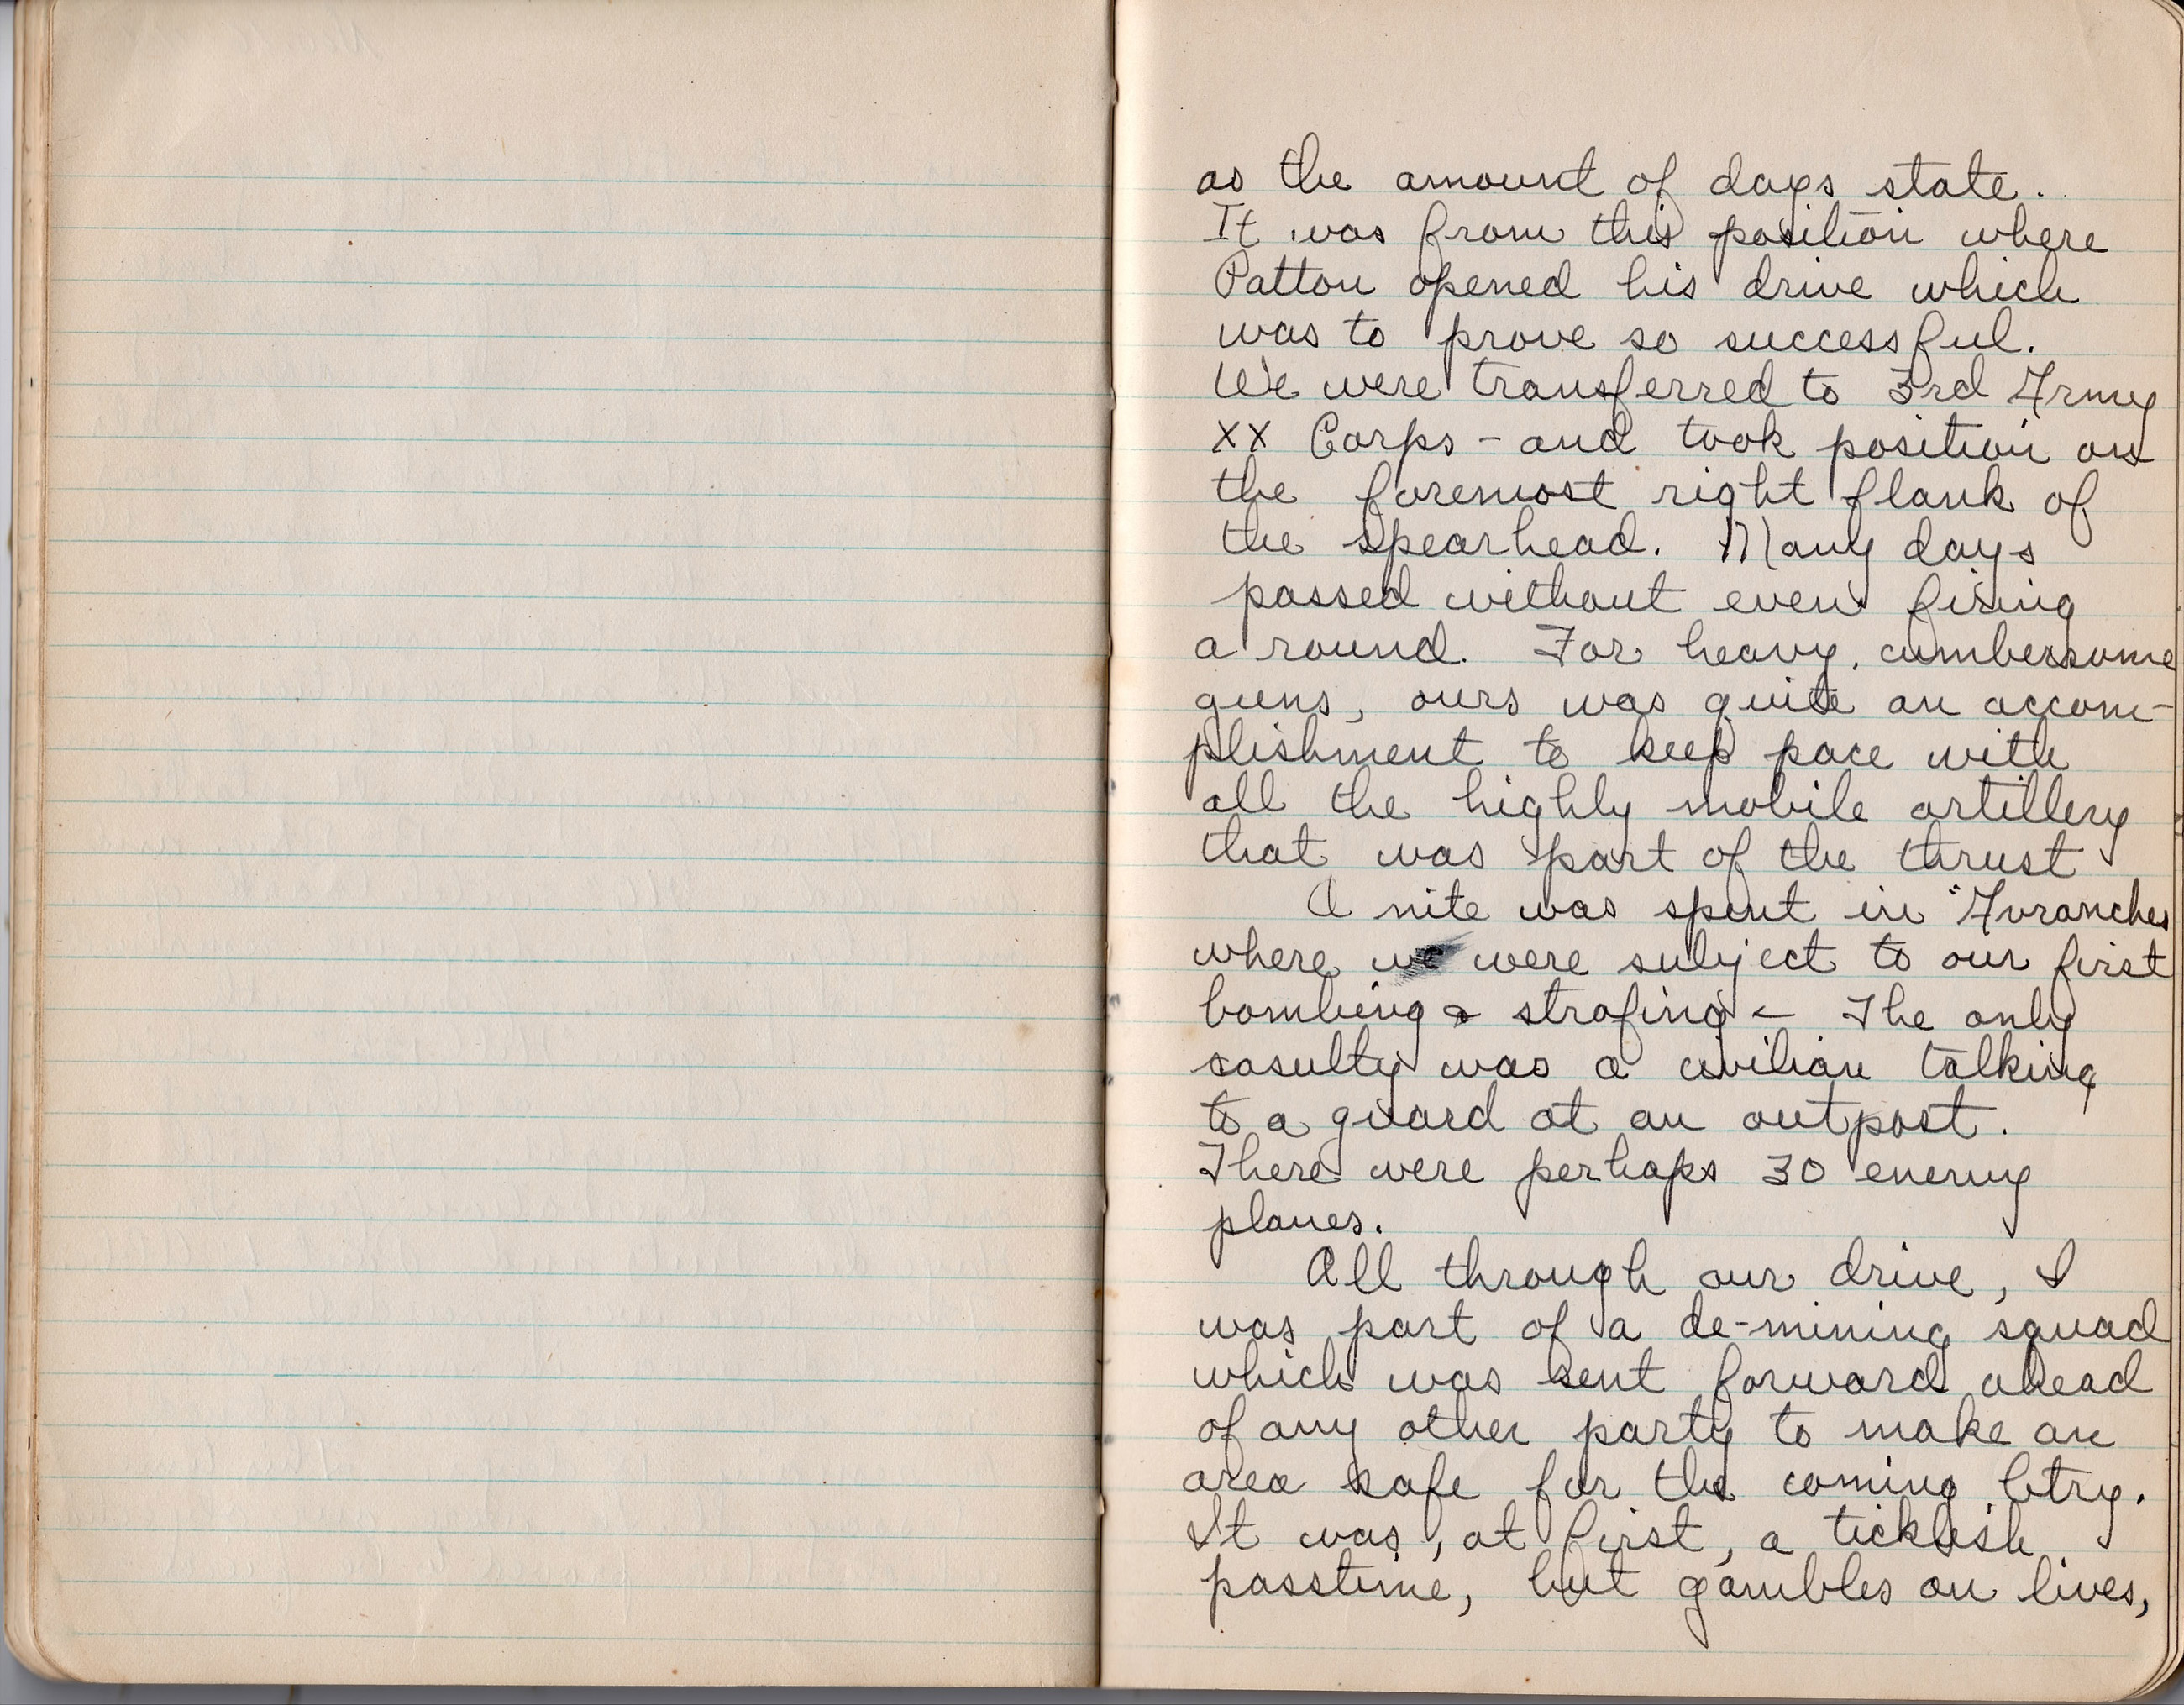 as the amount of days state.
It was from this position where
Patton opened his drive which
was to prove so successful.
We were transferred to 3rd Army
XX Corps - and took position on
the foremost right flank of
the spearhead. Many days
passed without even firing
a round. For heavy, cumbersome
guns, ours was quite an accom-
plishment to keep pace with
all the highly mobile artillery
that was part of the thrust
A nite was spent in "Avranches
where we were subject to our first
bombing & strafing - The only
casulty was a civilian talking
to a guard at an outpost.
There were perhaps 30 enemy
planes.
All through our drive, I
was part of a de-mining squad
which was sent forward ahead
of any other party to make an
area safe for the coming btry.
It was, at first, a ticklish
passtime, but gambles on lives,